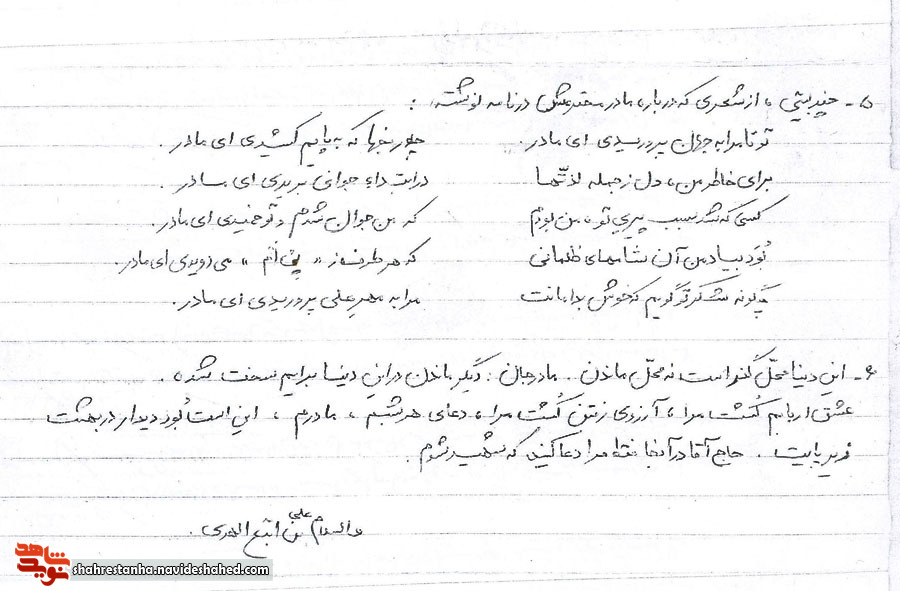 ۵- چند بیتی، از شعری که درباره مادر محترمش در نامه نوشته:
تو تا مرا به جهان پروریدی ای مادر    چه رنجها که به پایم کشیدی ای مادر.
برای خاطر من، دل ز جمله لذّتها    در ایت داءِ جوانی بریدی ای مادر.
کسی که شد سبب پیریِ تو، من بودم    که من جوان شدم و تو خمیدی ای مادر.
بُوَد بیاد من آن شامهای ظلمانی    که هر طرف ز «پی اَم» می دویدی ای مادر.
چگونه شکر تو گویم که خوش بدامانت    مرا به مهرِ علی پروریدی ای مادر.
۶- این دنیا محلّ گذر است نه محلّ ماندن. مادر جان: دیگر ماندن در این دنیا برایم سخت شده.
عشق اربابم کُشت مرا، آرزوی رفتن کُشت مرا، دعای هر شبم، مادرم، این است بُوَد دیدار در بهشت
زیر پایت. حاج آقا در آنجا فقط مرا دعا کنید که شهید شوم.
والسلام علی من اتّبع الهدی.
شاهد
نوید
shahrestanha.navideshahed.com